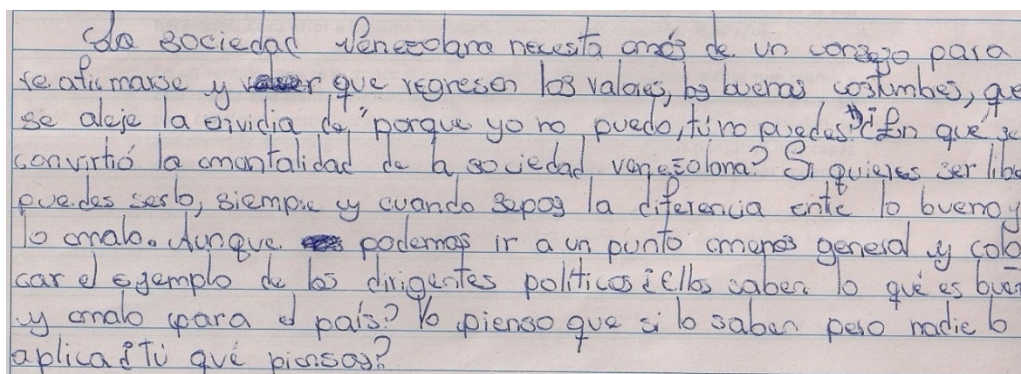 La sociedad Venezolana necesita más de un consejo para
reafirmarse y que regresen los valores, las buenas costumbes, que
se aleje la envidia de "porque yo no puedo, tú no puedes" ¿En qué se
convirtió la mentalidad de la sociedad venezolana? Si quieres ser libe
puedes serlo, siempre y cuando sepas la diferencia ente lo bueno y
lo malo. Aunque podemos ir a un punto menos general y colo
car el ejemplo de los dirigentes políticos ¿Ellos saben lo qué es buen
y malo para el país? Yo pienso que si lo saben pero nadie lo
aplica ¿Tú qué piensas?